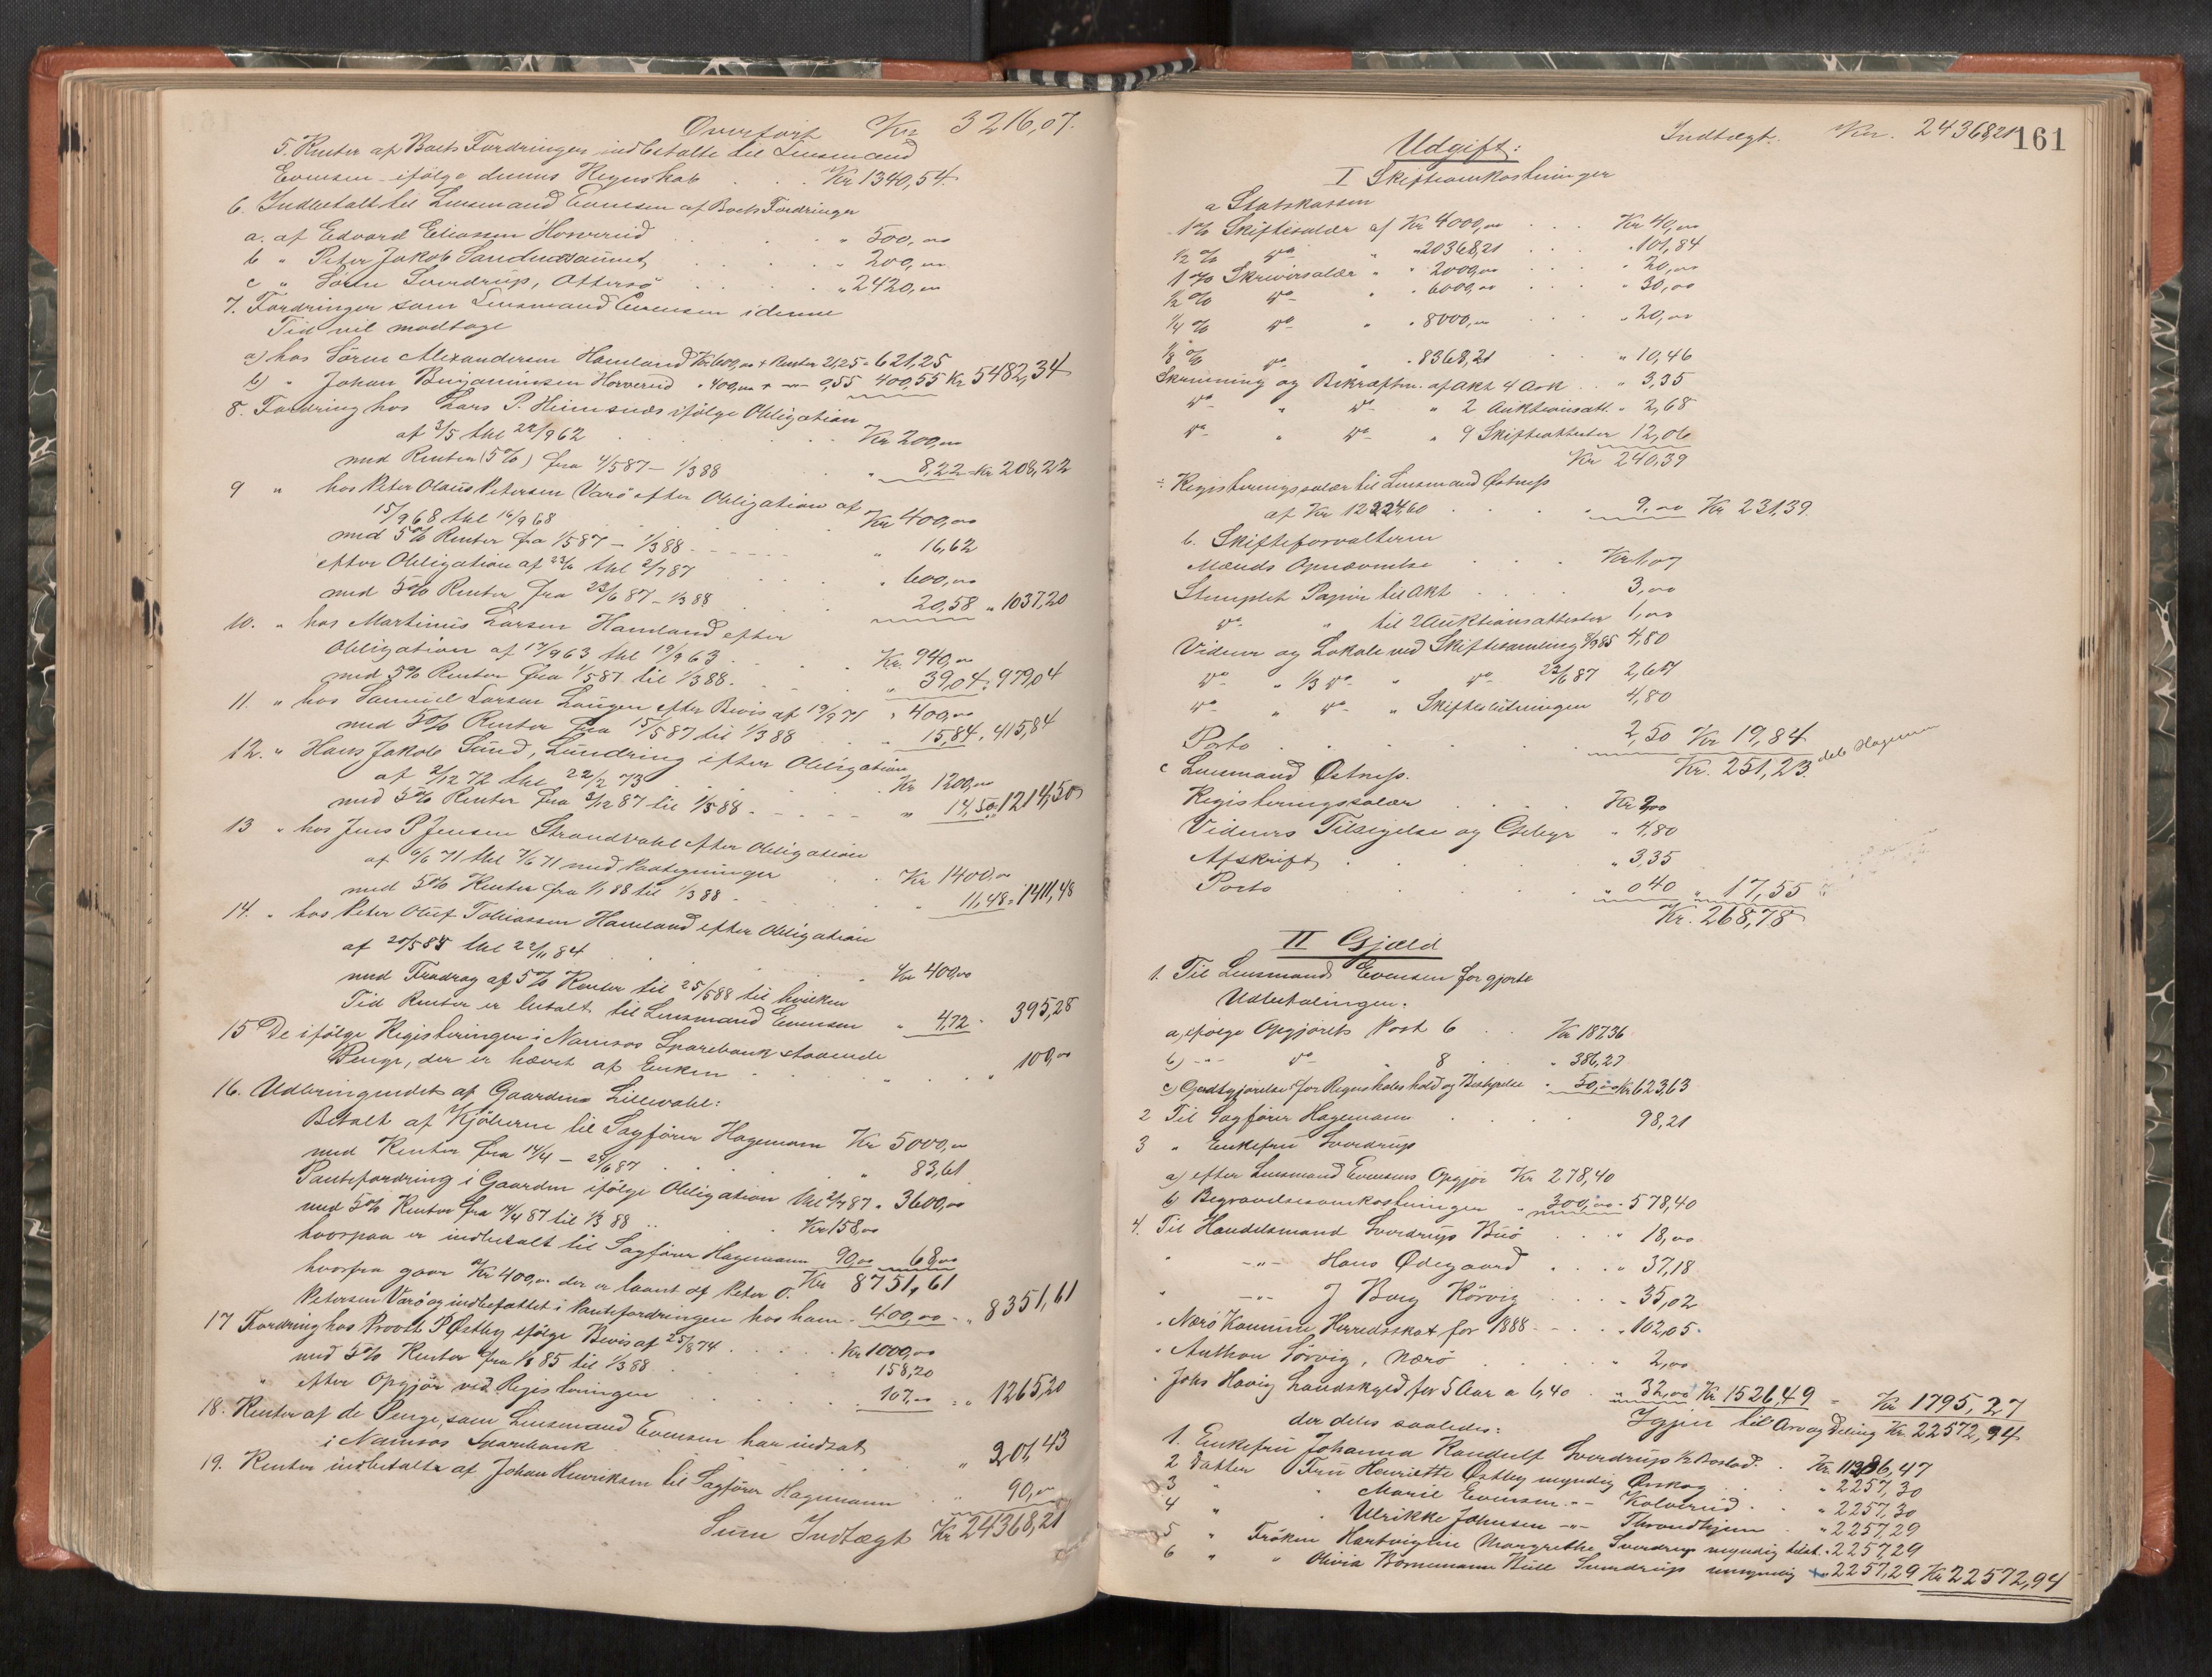 Overført Kr 3216,07.
5. Renter af Boets Fordringer indbetalte til Lensmand
Evensen ifølge dennes Regnskab . . . Kr 1340,54.
6. Indbetalt til Lensmand Evensen af Boets Fordringer
a. af Edvard Eliassen Horverud . . . " 500,00
b " Peter Jakob . . . " 200,00
c " Søren Sverdrup, Otterø . . . " 2420,00
7. Fordringer som Lensmand Evensen i denne
Tid vil modtage
a) hos Søren Alexandersen Hamland Kr 600,00 + Renter 21,25 = 621,25
b) " Johan Benjaminsen Horverud " 400,00 + -"- 0,55 400,55 Kr 5482,34
8. Fordring hos Lars P. Heimsnæs ifølge Obligation
af 3/5 thl 22/9 62 . . . Kr 200,00
med Renter (5%) fra 4/5 87 – 1/3 88 " 8,22 = Kr 208,22
9 " hos Peter Olaus Petersen Varø efter Obligation af
15/9 68 thl 16/9 68 . . . Kr 400,00
med 5% Renter fra 1/5 87 – 1/3 88 . . . " 16,62
efter Obligation af 23/6 thl 2/7 87 . . . " 600,00
med 5% Renter fra 23/6 87 – 1/3 88 . . . 20,58 " 1037,20
10. " hos Martinus Larsen Hamland efter
Obligation af 17/9 63 thl 19/9 63 . . . Kr. 940,00
med 5% Renter fra 1/5 87 til 1/3 88. . . . " 39,04 " 979,04
11. " hos Samuel Larsen Lungen efter Bevis af 19/9 71 " 400,00
med 5% Renter fra 15/5 87 til 1/3 88 . . . " 15,84 " 415,84
12. " Hans Jakob Sund, Lundring efter Obligation
af 2/12 72 thl 22/2 73 . . . Kr 1200,00
med 5% Renter fra 3/12 87 til 1/3 88 . . . " 14,50 " 1214,50
13 " hos Jens P Jensen Strandvahl efter Obligation
af 6/6 71 thl 7/6 71 med Paategninger . . . Kr 1400,00
med 5% Renter fra 1/1 88 til 1/3 88 . . . " 11,48 " 1411,48
14. " hos Peter Oluf Tobiassen Hamland efter Obligation
af 20/5 84 thl 22/11 84 . . . Kr 400,00
med Fradrag af 5% Renter til 25/5 88 til hvilken
Tid Renter er betalt til Lensmand Evensen " 4,72 " 395,28
15 De ifølge Registeringen i Namsos Sparebank staaende
Penge, der er hævet af Enken . . . " 100,00
16. Udbringendet af Gaarden Lillevahl:
Betalt af Kjøberen til Sagfører Hagemann Kr 5000,00
med Renter fra 14/4 – 24/6 87 . . . " 83,61
Pantefordring i Gaarden ifølge Obligation thl 2/7 87 " 3600,00
med 5% Renter fra 14/4 87 til 1/3 88 . . . Kr 158,00
hvorpaa er indbetalt til Sagfører Hagemann 90,00 68,00
Kr 8751,61
hvorfra gaar Kr 400,00 der er laant af Peter O.
Petersen Varø og indbefattet i Pantefordringen hos ham " 400,00 " 8351,61
17 Fordring hos Provst P Østby ifølge Bevis af 25/8 74 . . . Kr 1000,00
med 5% Renter fra 1/1 85 til 1/3 88 . . . " 158,20
" efter Opgjør ved Registeringen . . . " 107,00 " 1265,20
18. Renter af de Penge, som Lensmand Evensen har indsat
i Namsos Sparebank . . . " 201,43
19. Renter indbetalte af Johan Henriksen til Sagfører Hagemann . . . " 90,00
Sum Indtægt Kr 24368,21
Indtægt: Kr. 24368,21 161
Udgift:
I Skifteomkostninger
a Statskassen
1% Skiftesalær af Kr 4000,00 . . . Kr 40,00
1/2 % do " 20368,21 . . . " 101,84
1 % Skriversalær " " 2000,00 . . . " 20,00
1/2 % do " " 6000,00 . . . " 30,00
1/4 % do " " 8000,00 . . . " 20,00
1/8 % do " " 8368,21 . . . " 10,46
Skrivning og Bekræftn. af Akt 4 Ark . . " 3,35
do " do " 2 Auktionsatt. " 2,68
do " do " 9 Skifteattester 12,06
Kr 240,39
÷ Registeringssalær til Lensmand Østnes
af Kr 12224,60 . . . " 9,00 Kr 231,39.
b. Skifteforvalteren
Mænds Opnævnelse . . . Kr 1,07
Stemplet Papir til Akt . . . 3,00
do " til 2 Auktionsattester 1,00
Vidner og Lokale ved Skiftesamling 8/9 85 4,80
do " 1/3 do " do 23/6 87 2,67
do " do " Skifteslutningen 4,80
Porto . . . 2,50 Kr 19,84
Kr. 251,23. dele Hagemann
c Lensmand Østnes.
Registeringssalær . . . Kr 9,00
Vidners Tilsigelse og Gebyr " 4,80
Afskrift . . . " 3,35
Porto . . . " 0 40 " 17,55
Kr. 268,78
II Gjæld
1. Til Lensmand Evensen for gjorte
Udbetalinger:
a, ifølge Opgjørets Post 6 . . Kr 187,36
b) -"- do " 8 . . . " 386,27
c) Godtgjørelse for Regnskabshold og Bestyrelse " 50,00 Kr 623,63
2 Til Sagfører Hagemann . . . 98,21
3 " Enkefru Sverdrup
a) efter Lensmand Evensens Opgjør Kr 278,40
b Begravelsesomkostninger " 300,00 " 578,40
4. Til Handelsmand Sverdrups Buø . . . " 18,00
" -"- Hans Ødegaard . . . " 37,18
" -"- J Borg Rørvig . . . " 35,02
" Nærø Kommune Herredsskat for 1888 - . . " 102,05.
" Anthon Sørvig, Nærø . . . " 2,00
" Johs Havig Landskyld for 5 Aar a 6,40 . " 32,00 Kr 1526,49 = Kr 1795,27
Igjen til Arv og Deling Kr. 22572,94
der deles saaledes:
1. Enkefru Johanna Randulf Sverdrups . Kr. 11286,47
2 Datter Fru Henriette Østby myndig Ørskog . . . " 2257,30
3 " " Marie Evensen -"- Kolvereid . . " 2257,30
4 " " Ulrikke Johnsen -"- Throndhjem . " 2257,29
5 " Frøken Hartvigine Margrethe Sverdrup myndig tilst. " 2257,29
6 " " Olivia Bornemann Bull Sverdrup umyndig " 2257,29 Kr 22572,94